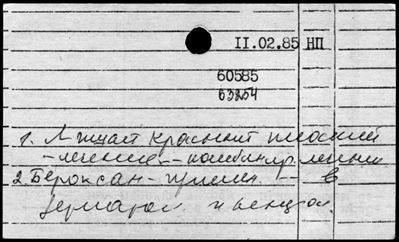 II.02.85 НП
60585
63254
1. Лишай красный плоский
- лечение - комбинир. лечение
2. Бероксан - примен. -- в
дерматол. и венерол.